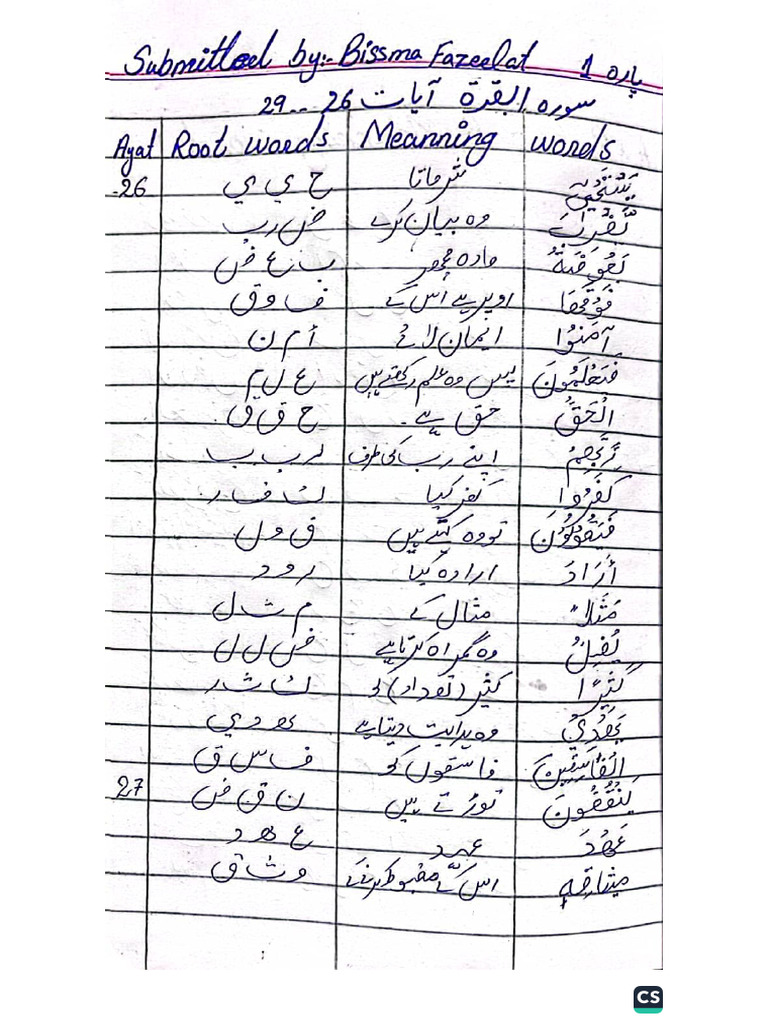 Submitted by:- Bissma Fazeelat پارہ 1
سورہ البقرۃ آیات 26 -- 29
Ayat Root words Meanning words
26 ح ي ي شرماتا يَسْتَحْيِيَ
ض ر ب وہ بیان کرے يَّضْرِبَ
ب ع ض مادہ مچھر بَعُوضَةً
ف و ق اوپر ہے اس کے فَوْقَهَا
أ م ن ایمان لائے آمَنُوا
ع ل م پس وہ علم رکھتے ہیں فَيَعْلَمُونَ
ح ق ق حق ہے۔ الْحَقُّ
ر ب ب اپنے رب کی طرف رَّبِّهِمْ
ك ف ر کفر کیا كَفَرُوا
ق و ل تو وہ کہتے ہیں فَيَقُولُونَ
ر و د ارادہ کیا أَرَادَ
م ث ل مثال کے مَثَلاً
ض ل ل وہ گمراہ کرتا ہے يُضِلُّ
ك ث ر کثیر (تعداد) کو كَثِيرًا
ه د ي وہ ہدایت دیتا ہے يَهْدِي
ف س ق فاسقوں کو الْفَاسِقِينَ
27 ن ق ض توڑتے ہیں يَنْقُضُونَ
ع ه د عہد عَهْدَ
و ث ق اس کے مضبوط کرنے کے مِيثَاقِهِ
CS